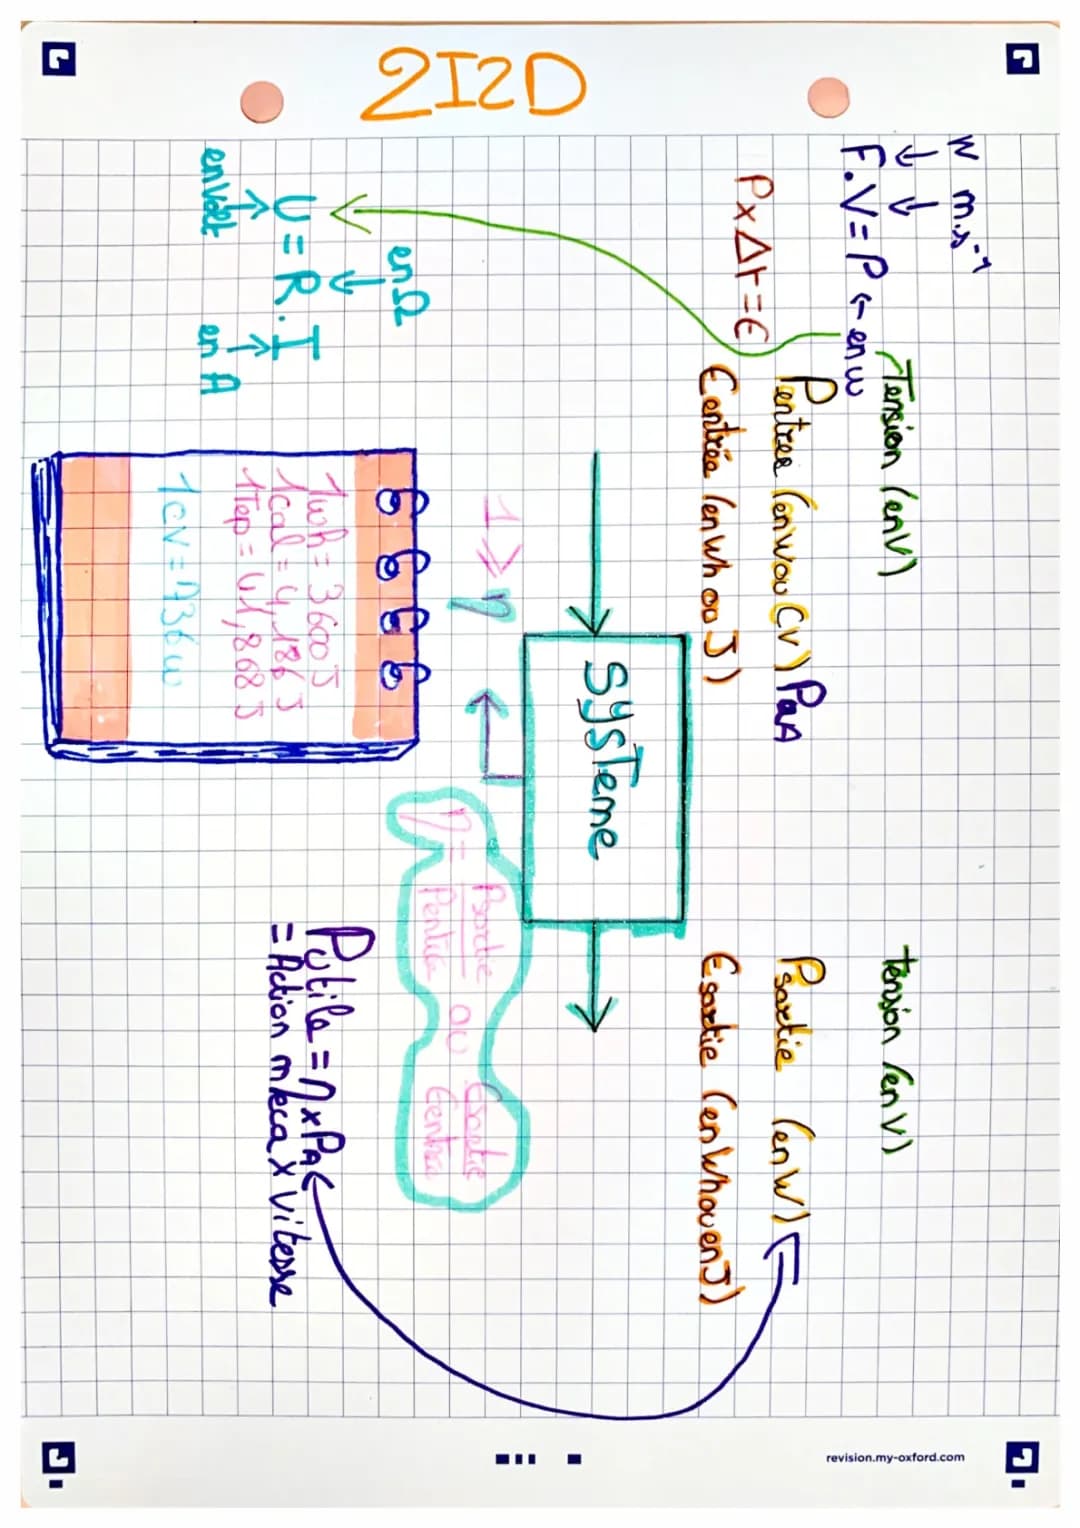 2I2D
N m.s⁻¹
F.V = P ← en W
P x Δt = E
Tension (en V)
Pentrée (en W ou CV) PaA
Eentrée (en Wh ou J)
en Ω
U = R . I
en Volt
en A
Système
1 > η
1Wh = 3600 J
1cal = 4,186 J
1Tep = 41,868 J
1CV = 736 W
tension (en V)
Psortie (en W)
Esortie (en Wh ou en J)
η = Psortie / Pentrée ou Esortie / Eentrée
Putile = η x PA
= Action méca x Vitesse
revision.my-oxford.com